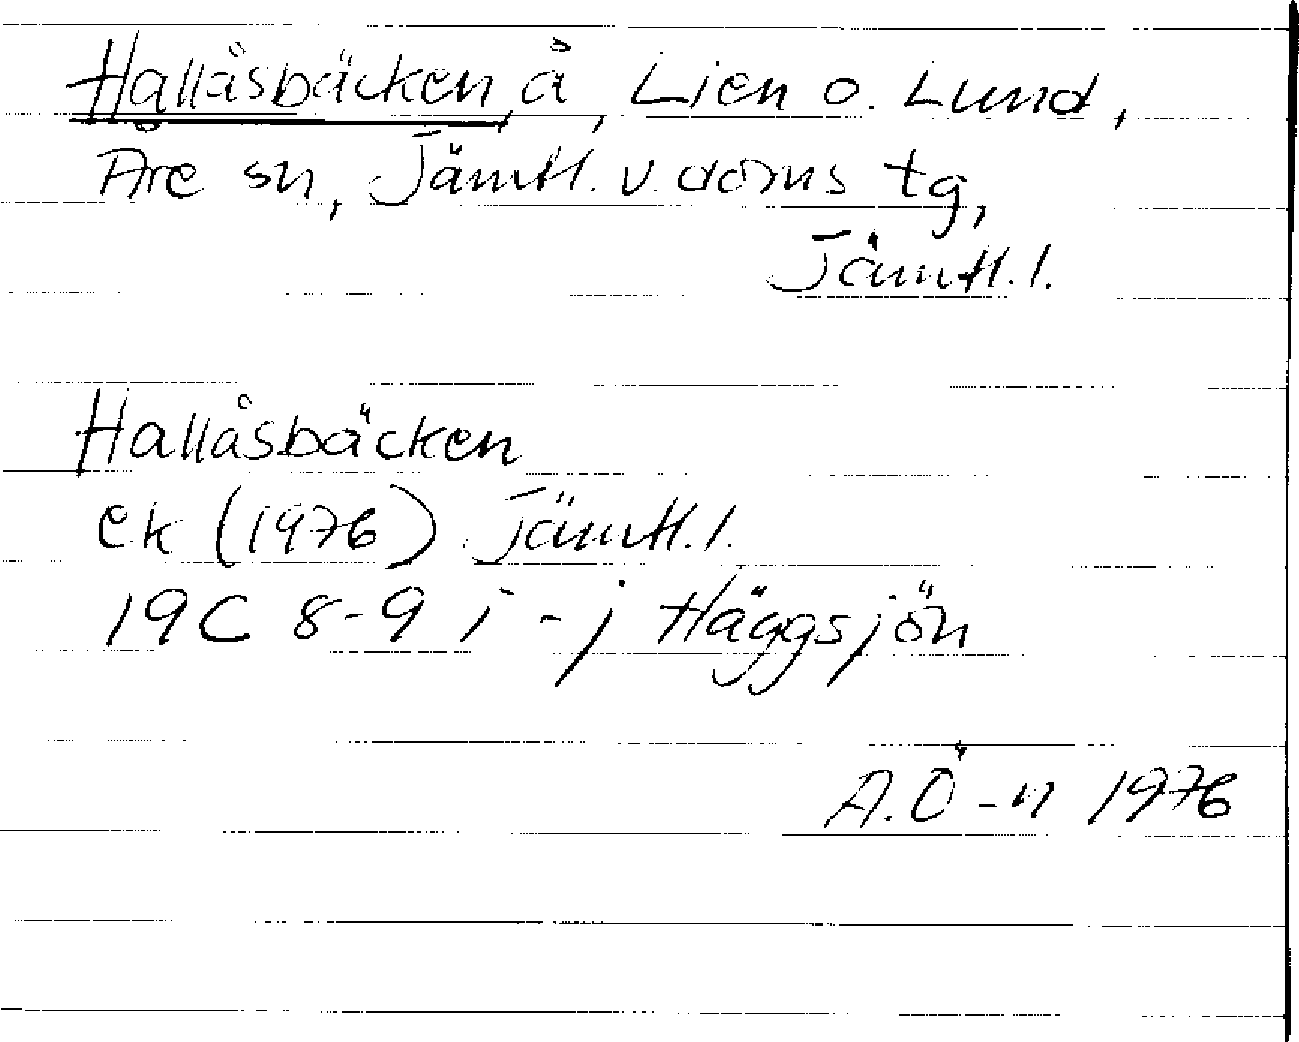 Hallåsbäcken, å, Lien o. Lund,
Åre sn, Jämtl. v. doms tg,
Jämtl. l.
Hallåsbäcken
ek (1976) Jämtl. l.
19C 8-9 i - j Häggsjön
A. Ö-n 1976